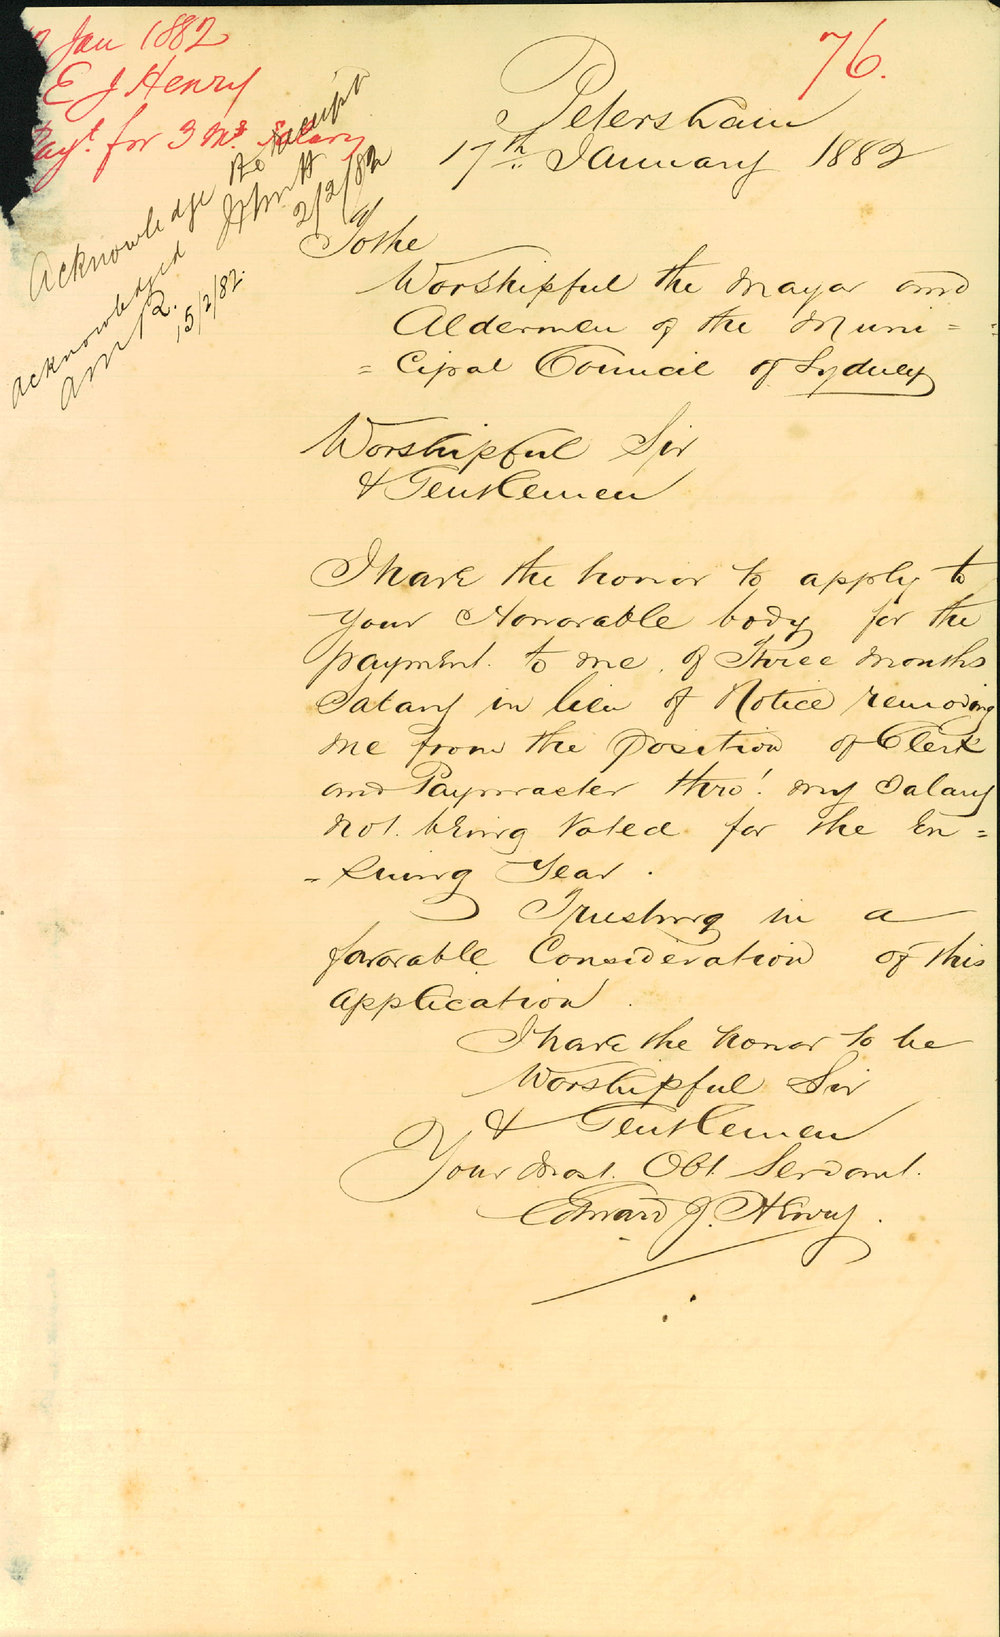 Jan 1882
E J Henry
Payt. for 3 Ms. Salary
76.
Acknowledge receipt
2/2/82
acknowledged
15/2/82.
Petersham
17th. January 1882
To the
Worshipful the Mayor and
Aldermen of the Muni=
=cipal Council of Sydney
Worshipful Sir
& Gentlemen
I have the honor to apply to
your Honorable body for the
payment to me, of Three Months
Salary in lieu of Notice removing
me from the position of Clerk
and Paymaster thro'! my Salary
not being Voted for the En=
=suing Year.
Trusting in a
favorable Consideration of this
application.
I have the honor to be
Worshipful Sir
& Gentlemen
Your Most. Obt. Servant.
Edward J. Henry.